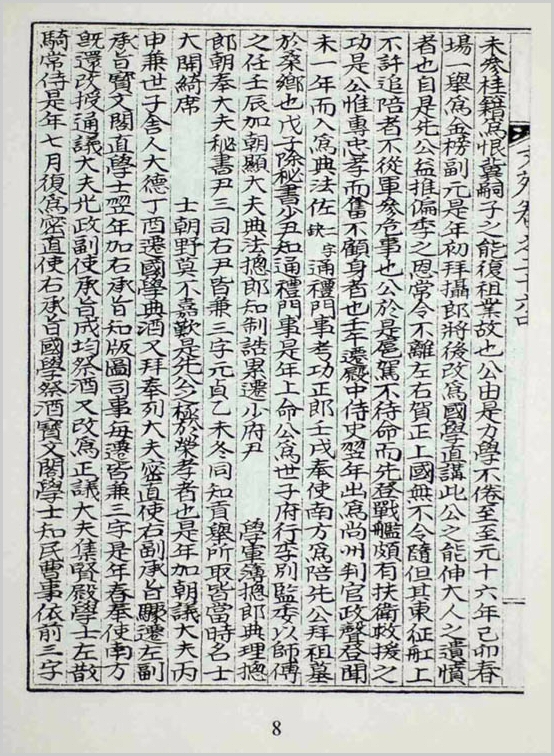 未參桂籍爲恨冀嗣子之能復租業故也公由是力學不倦至至元十六年己卯春
場一擧爲金榜副元是年初拜攝郎將後改爲國學直講此公之能伸大人之遺憤
者也自是先公益推偏季之恩常令不離左右賀正上國無不令隨但其東征舡上
不許追陪者不從軍參危事也公於是扈駕不待命而先登戰艦頗有扶衛救援之
功是公惟專忠孝而奮不顧身者也壬午遷殿中侍史翌年出爲尙州判官政聲登聞
未一年而入爲典法佐 二字缺 通禮門事考功正郎壬戌奉使南方爲陪先公拜祖墓
於桑鄕也戊子除秘書少尹知通禮門事是年上命公爲世子府行李別監委以師傅
之任壬辰加朝顯大夫典法摠郎知制誥累遷少府尹 學軍簿摠郎典理摠
郎朝奉大夫秘書尹三司右尹皆兼三字元貞乙未冬同知貢擧所取皆當時名士
大開綺席 士朝野莫不嘉歎是先公之極於榮孝者也是年加朝議大夫丙
申兼世子舍人大德丁酉遷國學典酒又拜奉列大夫密直使右副承旨驟遷左副
承旨寶文閣直學士翌年加右承旨知版圖司事每遷皆兼三字是年春奉使南方
旣還改授通議大夫光政副使承旨成均祭酒又改爲正議大夫集賢殿學士左散
騎常侍是年七月復爲密直使右承旨國學祭酒寶文閣學士知民曹事依前三字
8